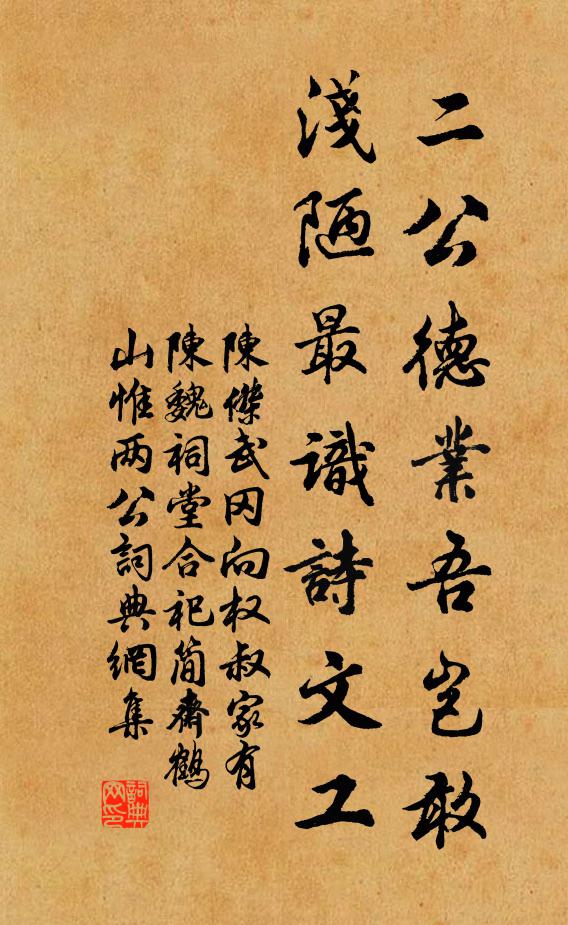 二公德業吾豈敢
淺陋最識詩文工
陳傑武冈向权叔家有
陳魏祠堂合祀简齋鶴
山惟两公詞典網集
詞典網印